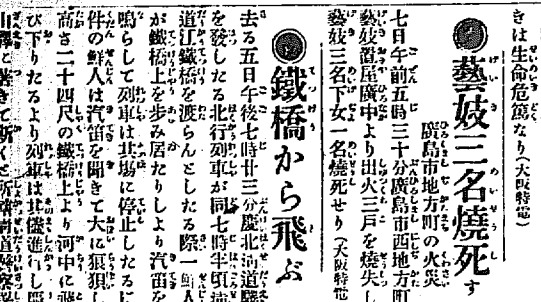 きは生命危篤なり(大阪特電)
◉藝妓三名燒死す
廣島市地方町の火災
七日午前五時三十分廣島市西地方町
藝妓置屋廣中より出火三戸を燒失し
藝妓三名下女一名燒死せり(大阪特電
◉鐵橋から飛ぶ
去る五日午後七時廿三分慶北河道驛
を發したる北行列車が同七時半頃
道江鐵橋を渡らんとしたる際一鮮人
が鐵橋上を歩み居たりしより汽笛を
鳴らして列車は其塲に停止したるに
件の鮮人は汽笛を聞きて大に狼狽し
高さ二十四尺の鐵橋上より河中に
び下りたるより列車は其儘進行し